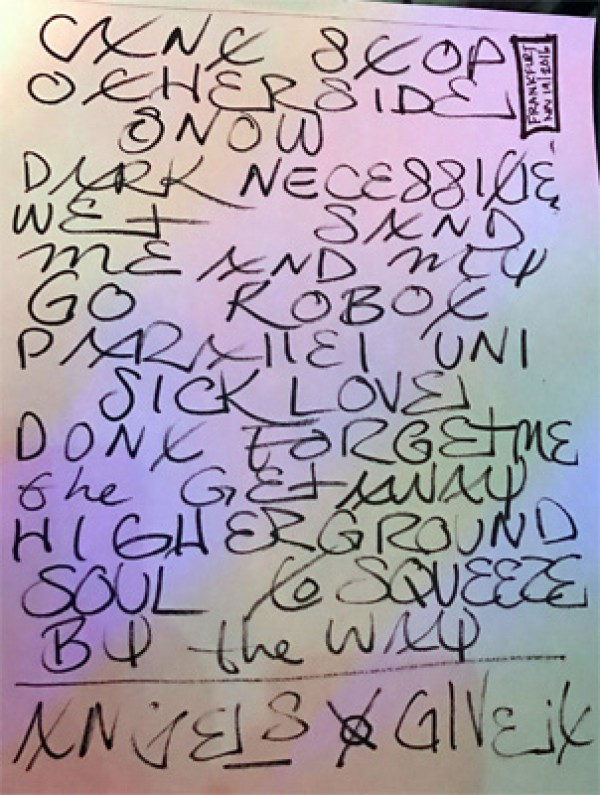 CANT STOP
FRANKFURT
NOV 14/2016
OTHERSIDE
SNOW
DARK NECESSITIE
WET SAND
ME AND MY
GO ROBOT
PARALLEL UNI
SICK LOVE
DONT FORGET ME
the GETAWAY
HIGHER GROUND
SOUL to SQUEEZE
BY the WAY
ANGELS GIVE IT